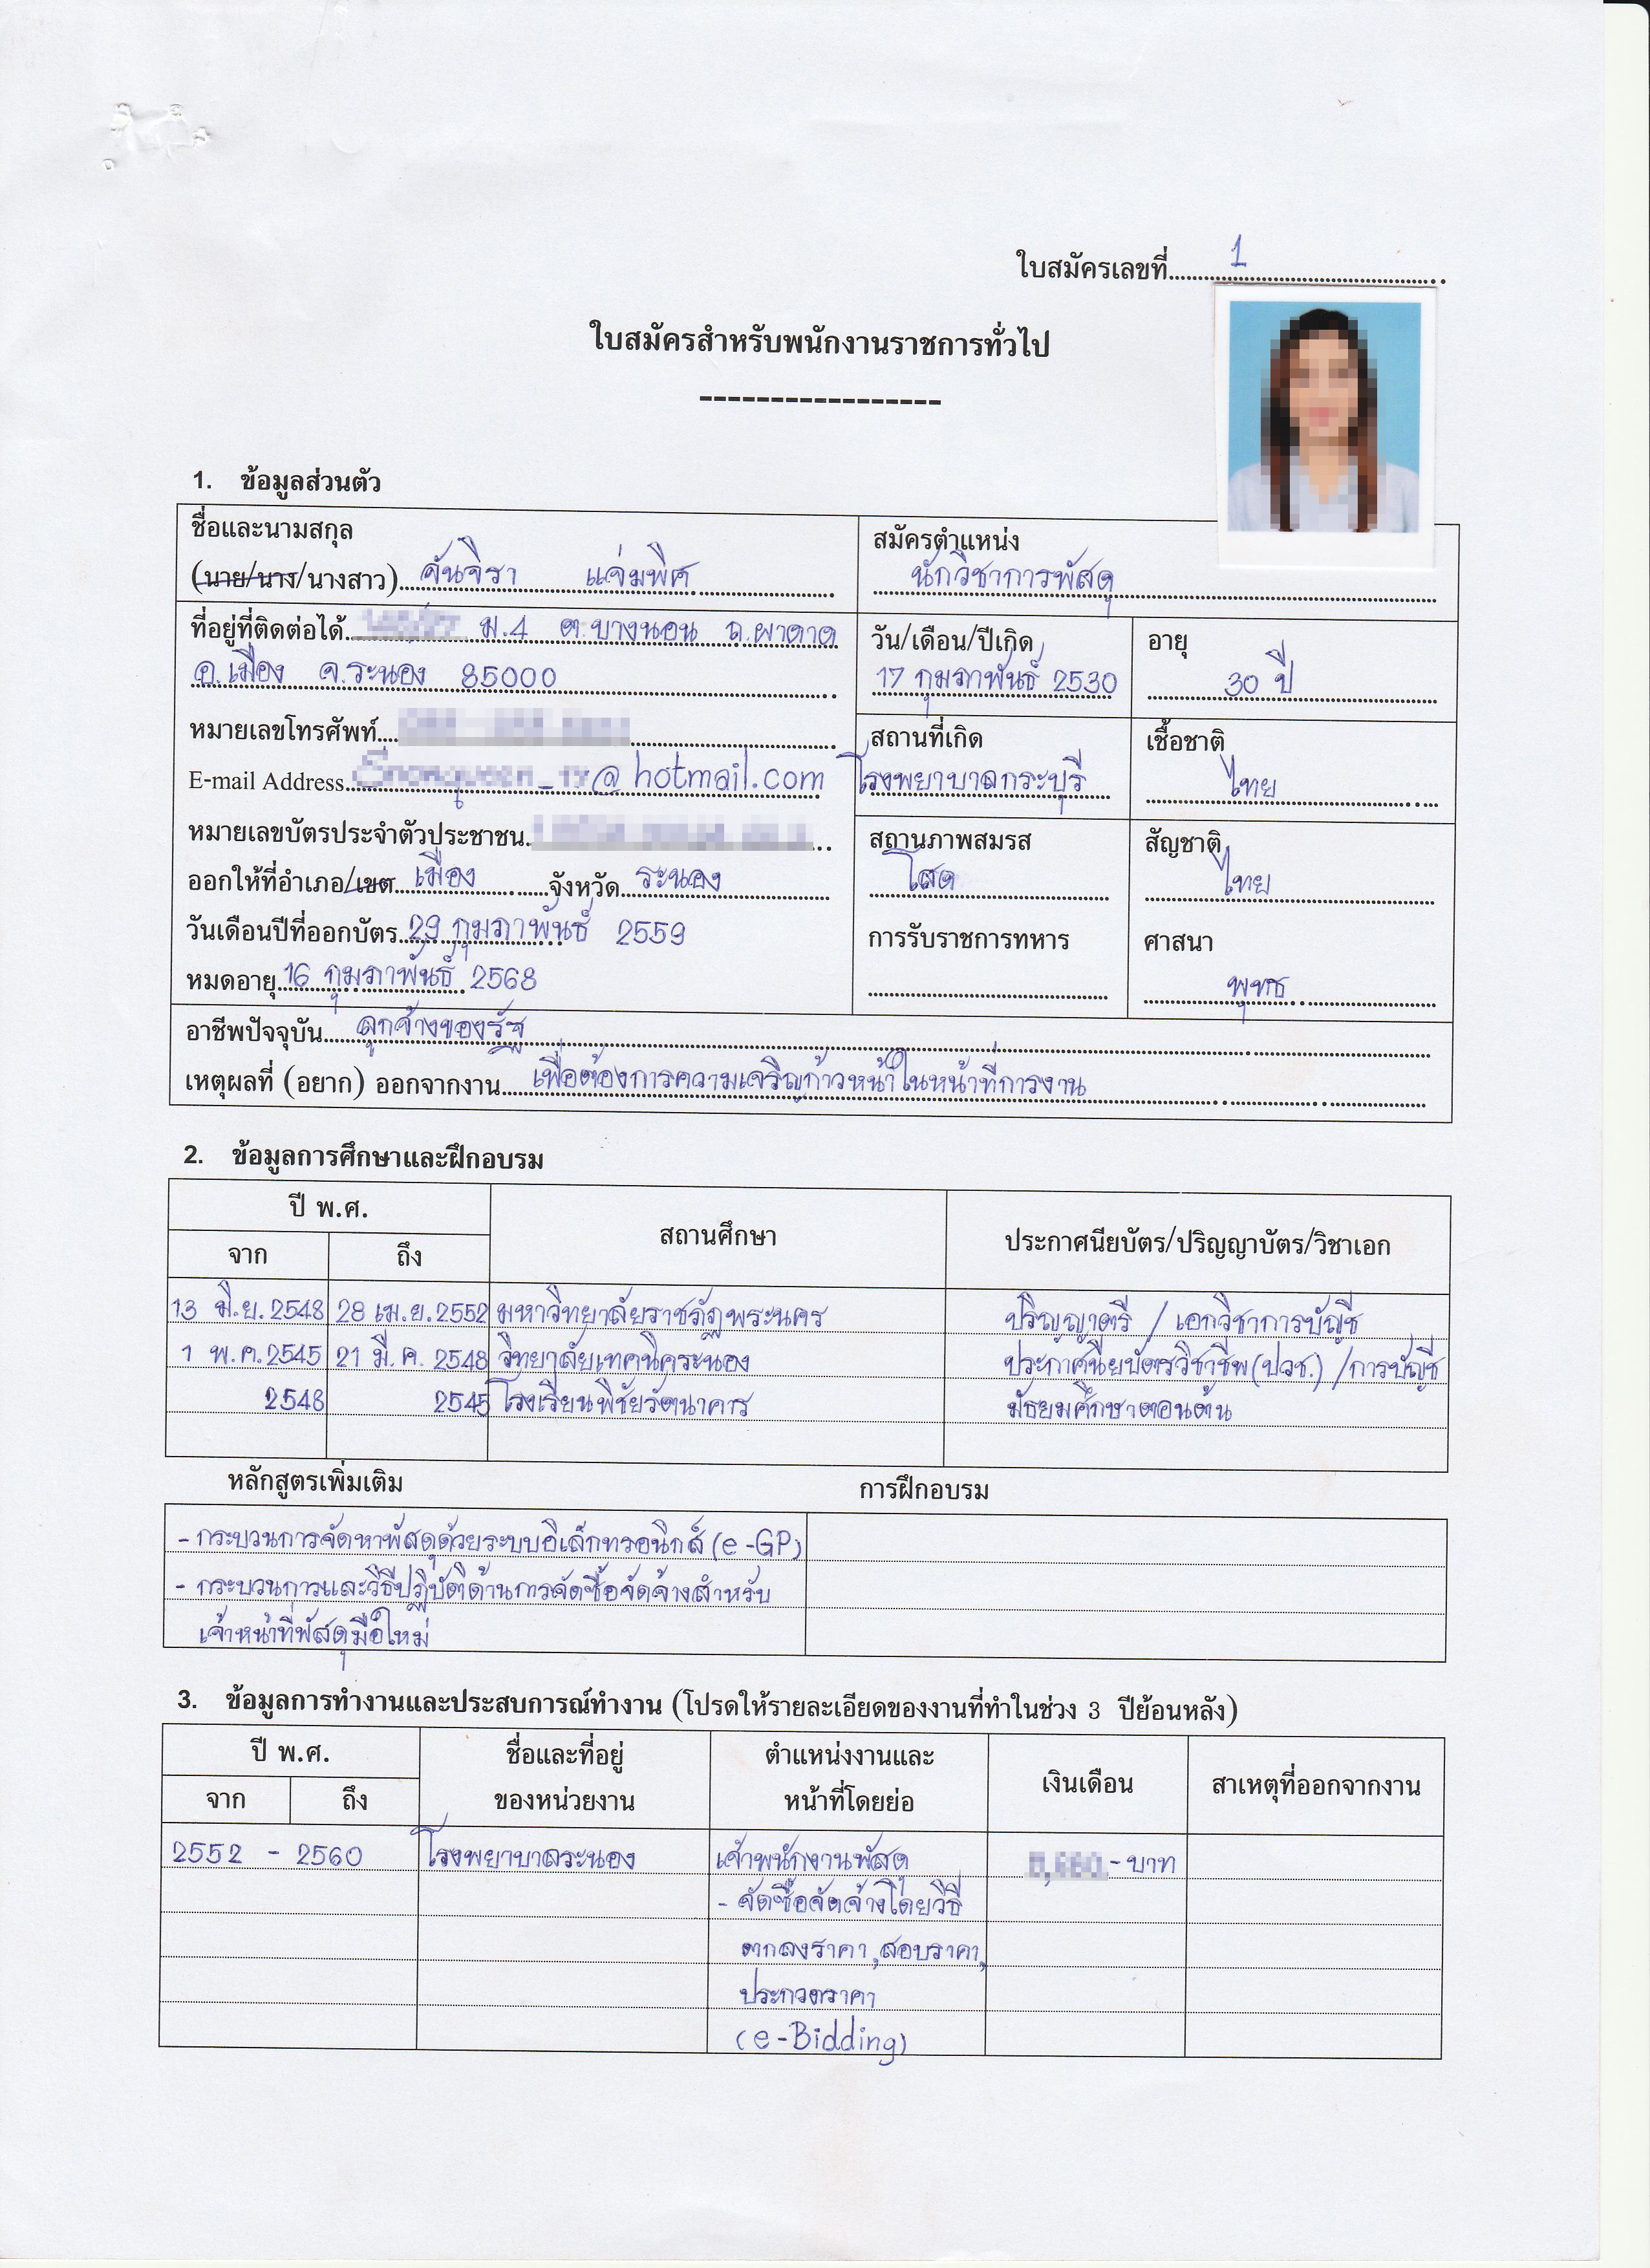 ใบสมัครเลขที่ 1
ใบสมัครสำหรับพนักงานราชการทั่วไป
-----------------
1. ข้อมูลส่วนตัว
ชื่อและนามสกุล
(นาย/นาง/นางสาว) จันจิรา แจ่มพิศ
สมัครตำแหน่ง
นักวิชาการพัสดุ
ที่อยู่ที่ติดต่อได้ ม.4 ต.บางนอน ถ.ผาดาด
อ.เมือง จ.ระนอง 85000
วัน/เดือน/ปีเกิด
17 กุมภาพันธ์ 2530
อายุ
30 ปี
หมายเลขโทรศัพท์
E-mail Address @hotmail.com
สถานที่เกิด
โรงพยาบาลกระบุรี
เชื้อชาติ
ไทย
หมายเลขบัตรประจำตัวประชาชน
ออกให้ที่อำเภอ/เขต เมือง จังหวัด ระนอง
สถานภาพสมรส
โสด
สัญชาติ
ไทย
วันเดือนปีที่ออกบัตร 29 กุมภาพันธ์ 2559
หมดอายุ 16 กุมภาพันธ์ 2568
การรับราชการทหาร
ศาสนา
พุทธ
อาชีพปัจจุบัน ลูกจ้างของรัฐ
เหตุผลที่ (อยาก) ออกจากงาน เพื่อต้องการความเจริญก้าวหน้าในหน้าที่การงาน
2. ข้อมูลการศึกษาและฝึกอบรม
ปี พ.ศ.
จาก ถึง
สถานศึกษา
ประกาศนียบัตร/ปริญญาบัตร/วิชาเอก
13 มิ.ย.2548 28 เม.ย.2552 มหาวิทยาลัยราชภัฏพระนคร ปริญญาตรี / เอกวิชาการบัญชี
1 พ.ค.2545 21 มี.ค. 2548 วิทยาลัยเทคนิคระนอง ประกาศนียบัตรวิชาชีพ(ปวช.) /การบัญชี
2548 2545 โรงเรียนพิชัยรัตนาคาร มัธยมศึกษาตอนต้น
หลักสูตรเพิ่มเติม การฝึกอบรม
- กระบวนการจัดหาพัสดุด้วยระบบอิเล็กทรอนิกส์ (e-GP)
- กระบวนการและวิธีปฏิบัติด้านการจัดซื้อจัดจ้างสำหรับ
เจ้าหน้าที่พัสดุมือใหม่
3. ข้อมูลการทำงานและประสบการณ์ทำงาน (โปรดให้รายละเอียดของงานที่ทำในช่วง 3 ปีย้อนหลัง)
ปี พ.ศ.
จาก ถึง
ชื่อและที่อยู่
ของหน่วยงาน
ตำแหน่งงานและ
หน้าที่โดยย่อ
เงินเดือน
สาเหตุที่ออกจากงาน
2552 - 2560 โรงพยาบาลระนอง เจ้าพนักงานพัสดุ .- บาท
- จัดซื้อจัดจ้างโดยวิธี
ตกลงราคา,สอบราคา,
ประกวดราคา
(e-Bidding)